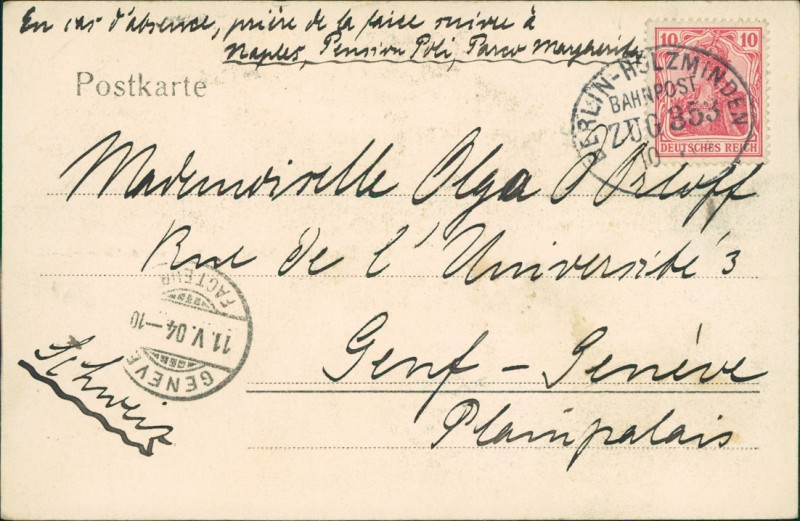 En cas d'absence, prière de la faire suivre à
Naples, Pension Poli, Parco Margherita
Postkarte
10 10
DEUTSCHES REICH
BERLIN-HOLZMINDEN
BAHNPOST
ZUG 353
10
Mademoiselle Olga Orloff
Rue de l'Université 3
FACTEUR
11.V.04-10
GENÈVE
Genf - Genève
Schweiz
Plainpalais